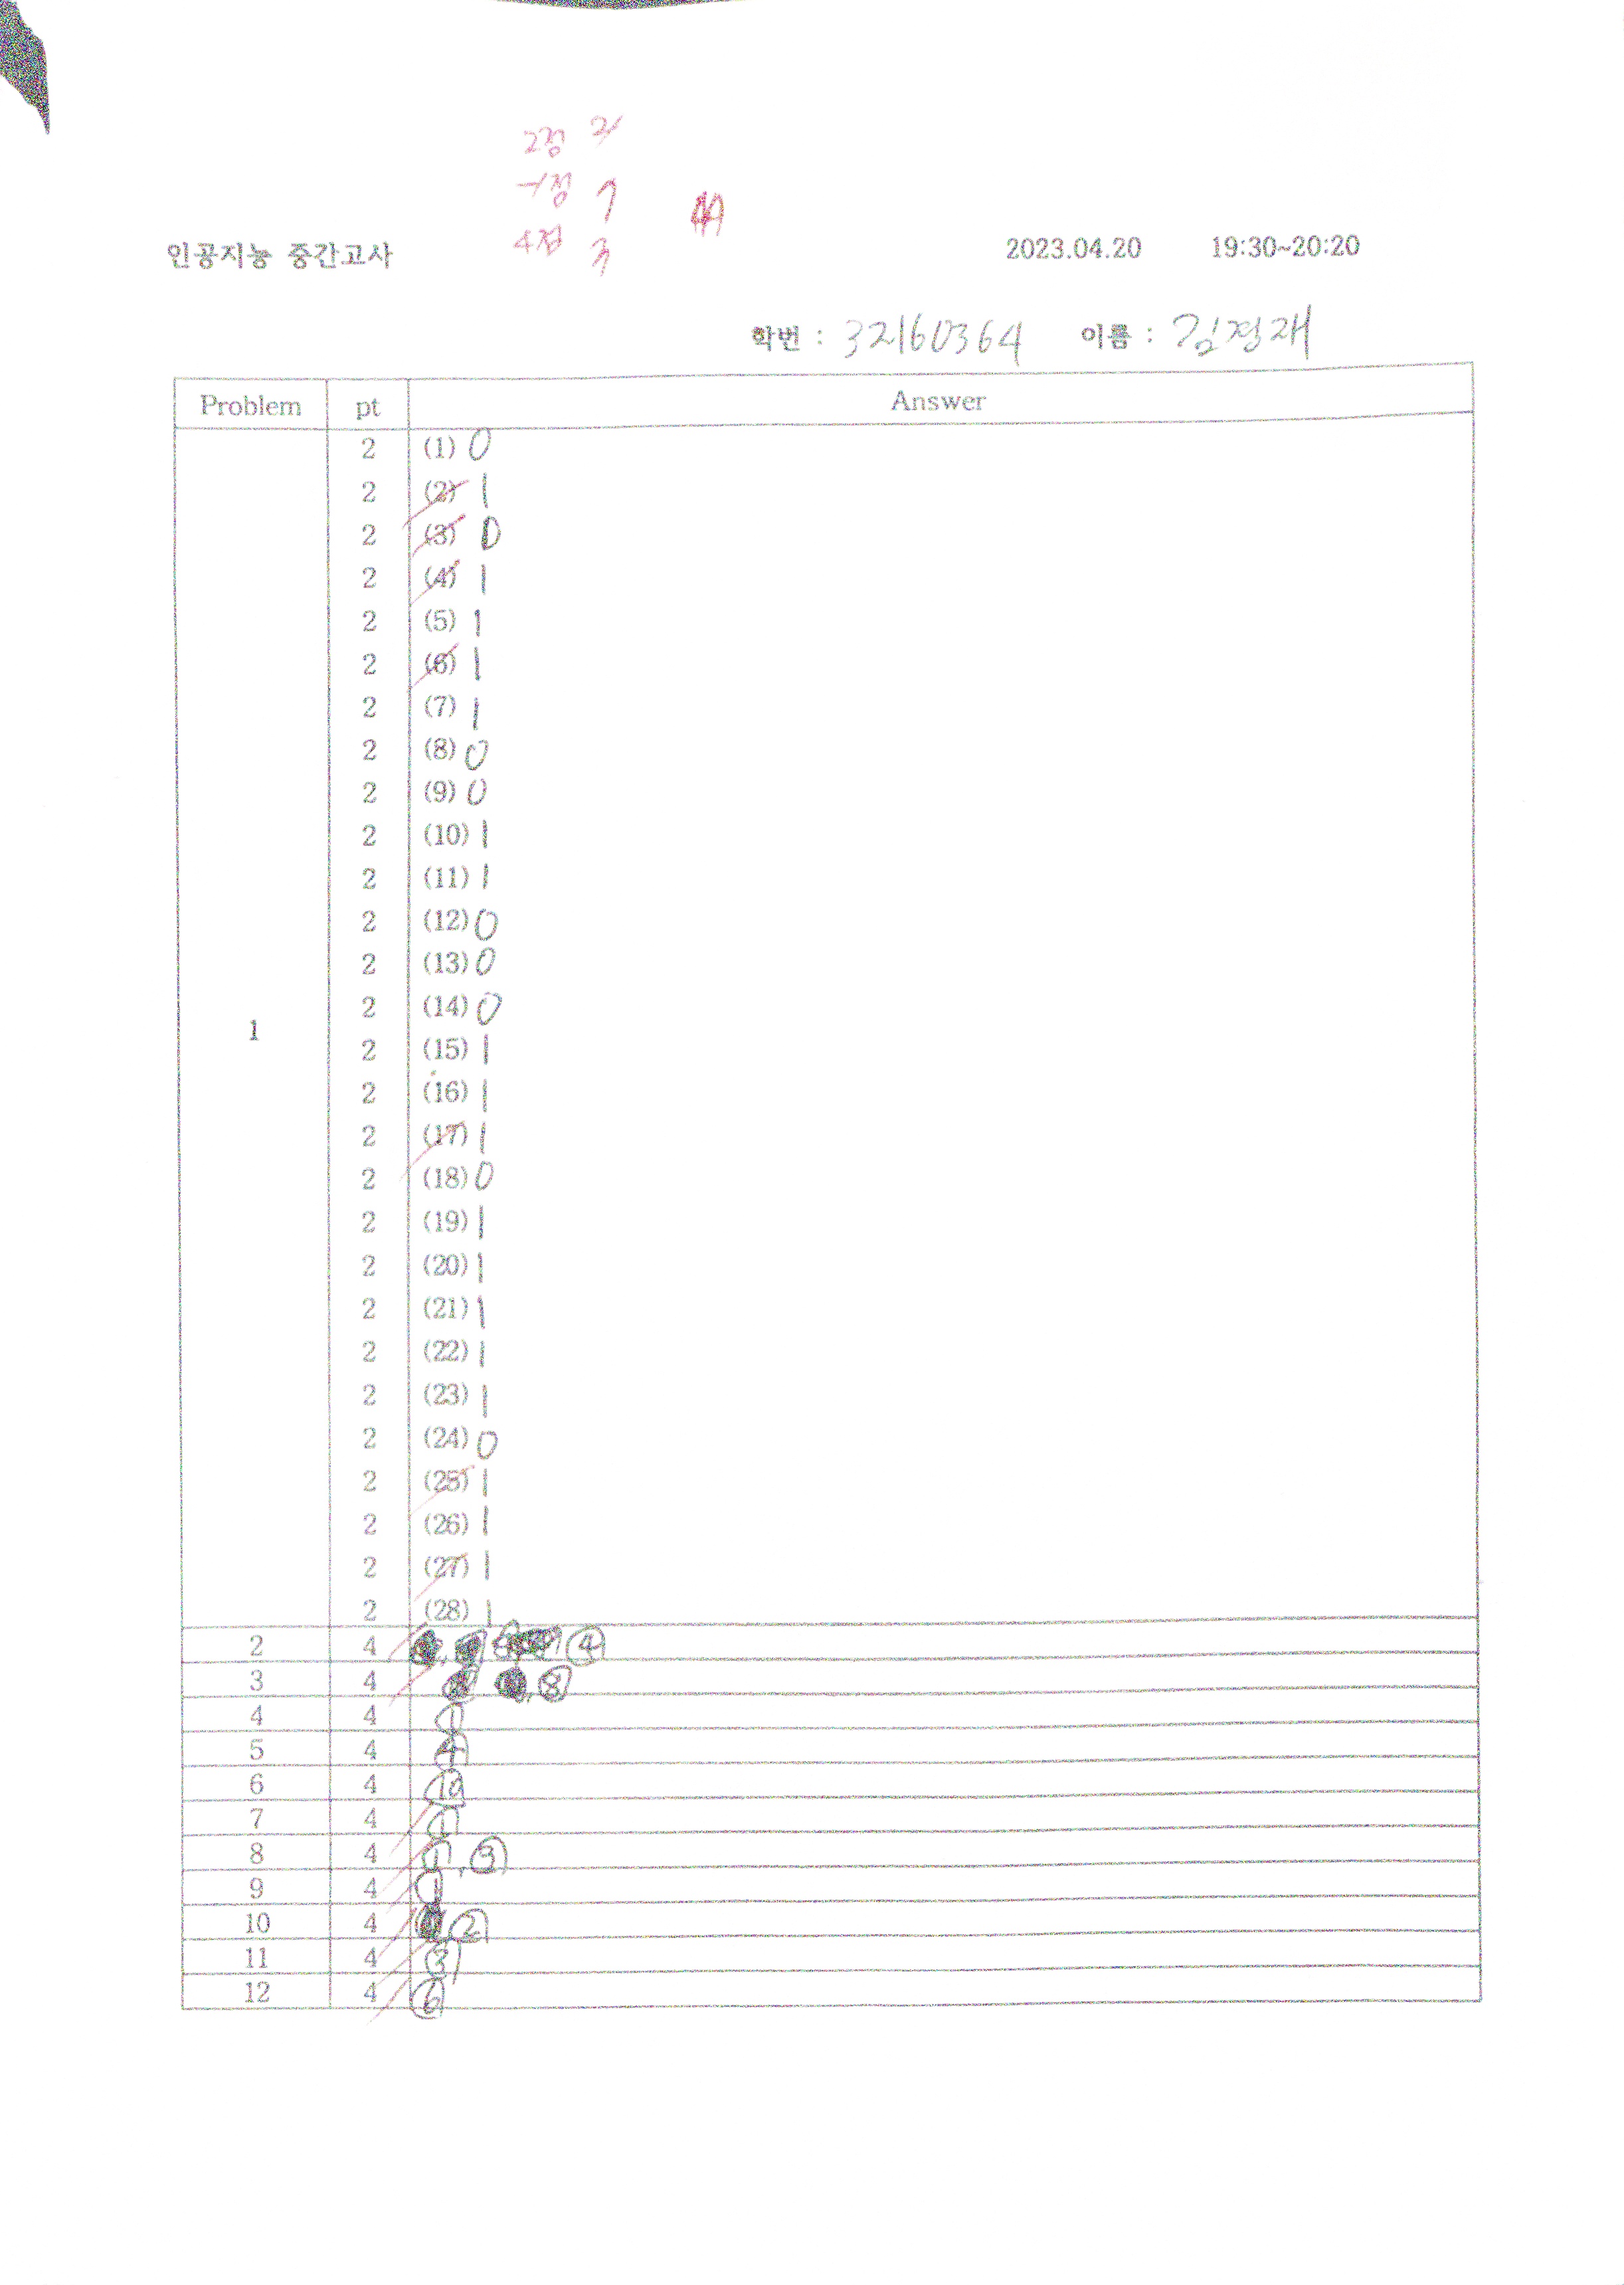 2점 21
-1점 7
4점 3
44
인공지능 중간고사 2023.04.20 19:30~20:20
학번 : 32160364 이름 : 김정재
Problem pt Answer
1
2 (1) 0
2 (2) 1
2 (3) 0
2 (4) 1
2 (5) 1
2 (6) 1
2 (7) 1
2 (8) 0
2 (9) 0
2 (10) 1
2 (11) 1
2 (12) 0
2 (13) 0
2 (14) 0
2 (15) 1
2 (16) 1
2 (17) 1
2 (18) 0
2 (19) 1
2 (20) 1
2 (21) 1
2 (22) 1
2 (23) 1
2 (24) 0
2 (25) 1
2 (26) 1
2 (27) 1
2 (28) 1
2 4 ④
3 4 ⑧
4 4 ①
5 4 ④
6 4 ⑩
7 4 ①
8 4 ①, ③
9 4 ①
10 4 ②
11 4 ③
12 4 ⑥